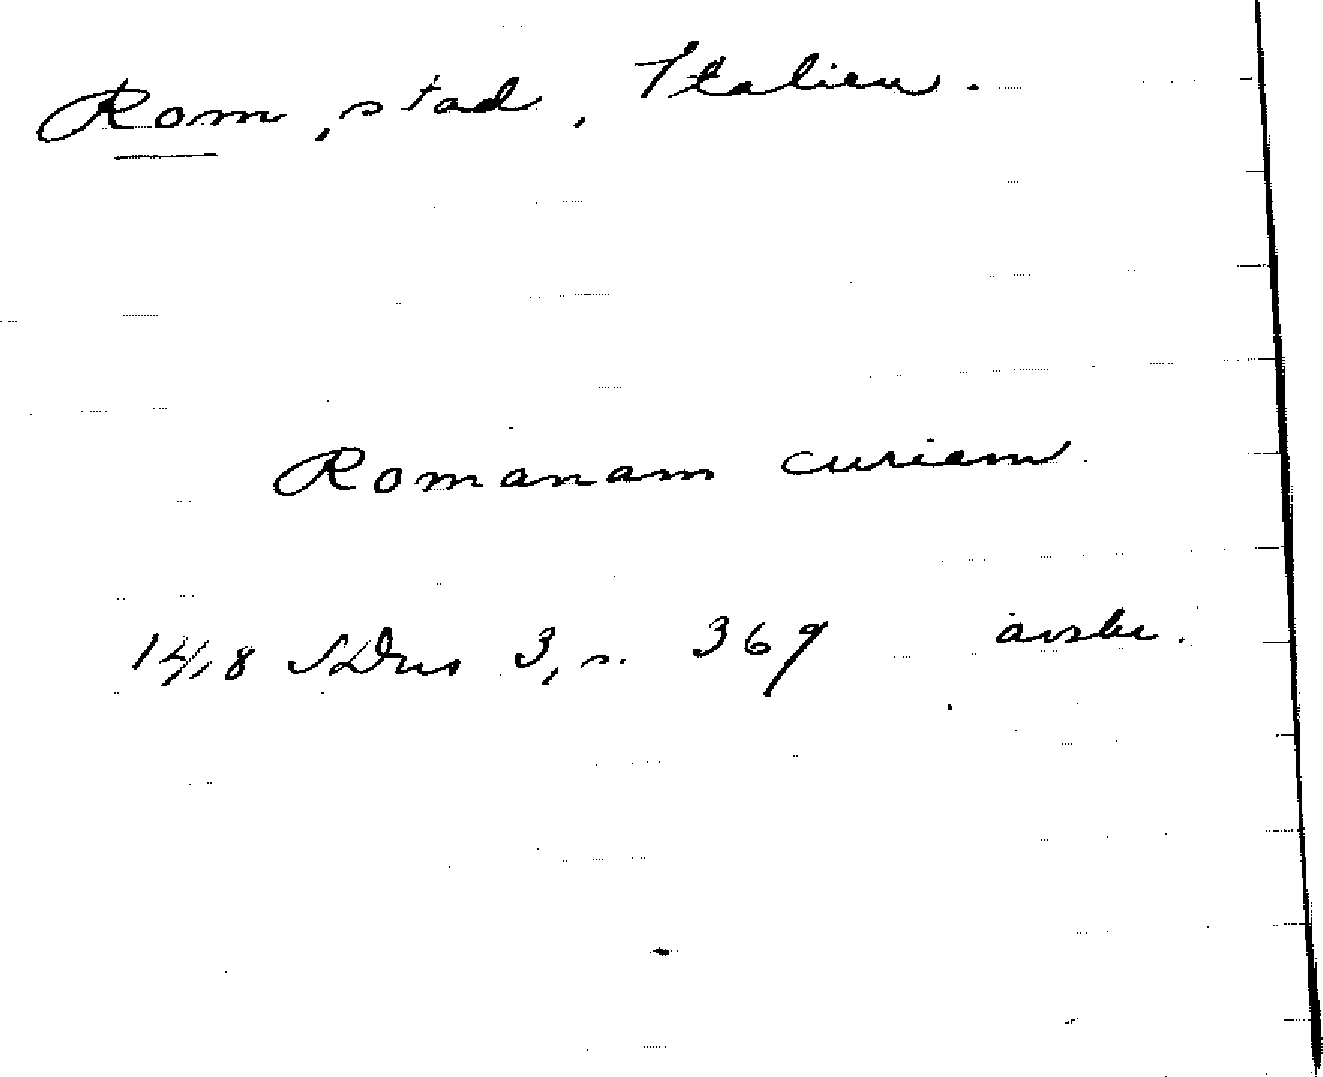 Rom, stad, Italien.
Romanam curiam
1418 SDns 3, s. 369 avskr.